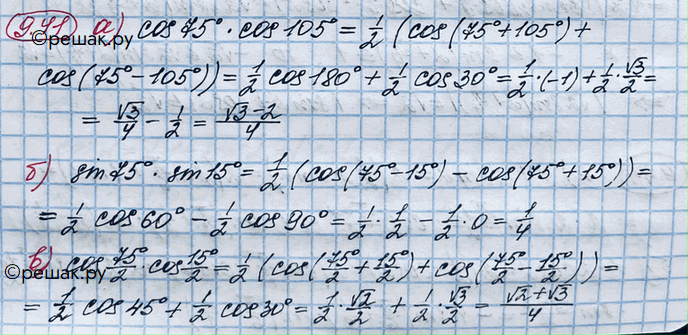 9.41 а) cos 75° · cos 105° = 1/2 (cos(75°+105°) +
©решак.ру
cos(75°-105°)) = 1/2 cos 180° + 1/2 cos 30° = 1/2 · (-1) + 1/2 · √3/2 =
= √3/4 - 1/2 = (√3-2)/4
б) sin 75° · sin 15° = 1/2 (cos(75°-15°) - cos(75°+15°)) =
= 1/2 cos 60° - 1/2 cos 90° = 1/2 · 1/2 - 1/2 · 0 = 1/4
в) cos 75°/2 · cos 15°/2 = 1/2 (cos(75°/2 + 15°/2) + cos(75°/2 - 15°/2)) =
©решак.ру
= 1/2 cos 45° + 1/2 cos 30° = 1/2 · √2/2 + 1/2 · √3/2 = (√2+√3)/4